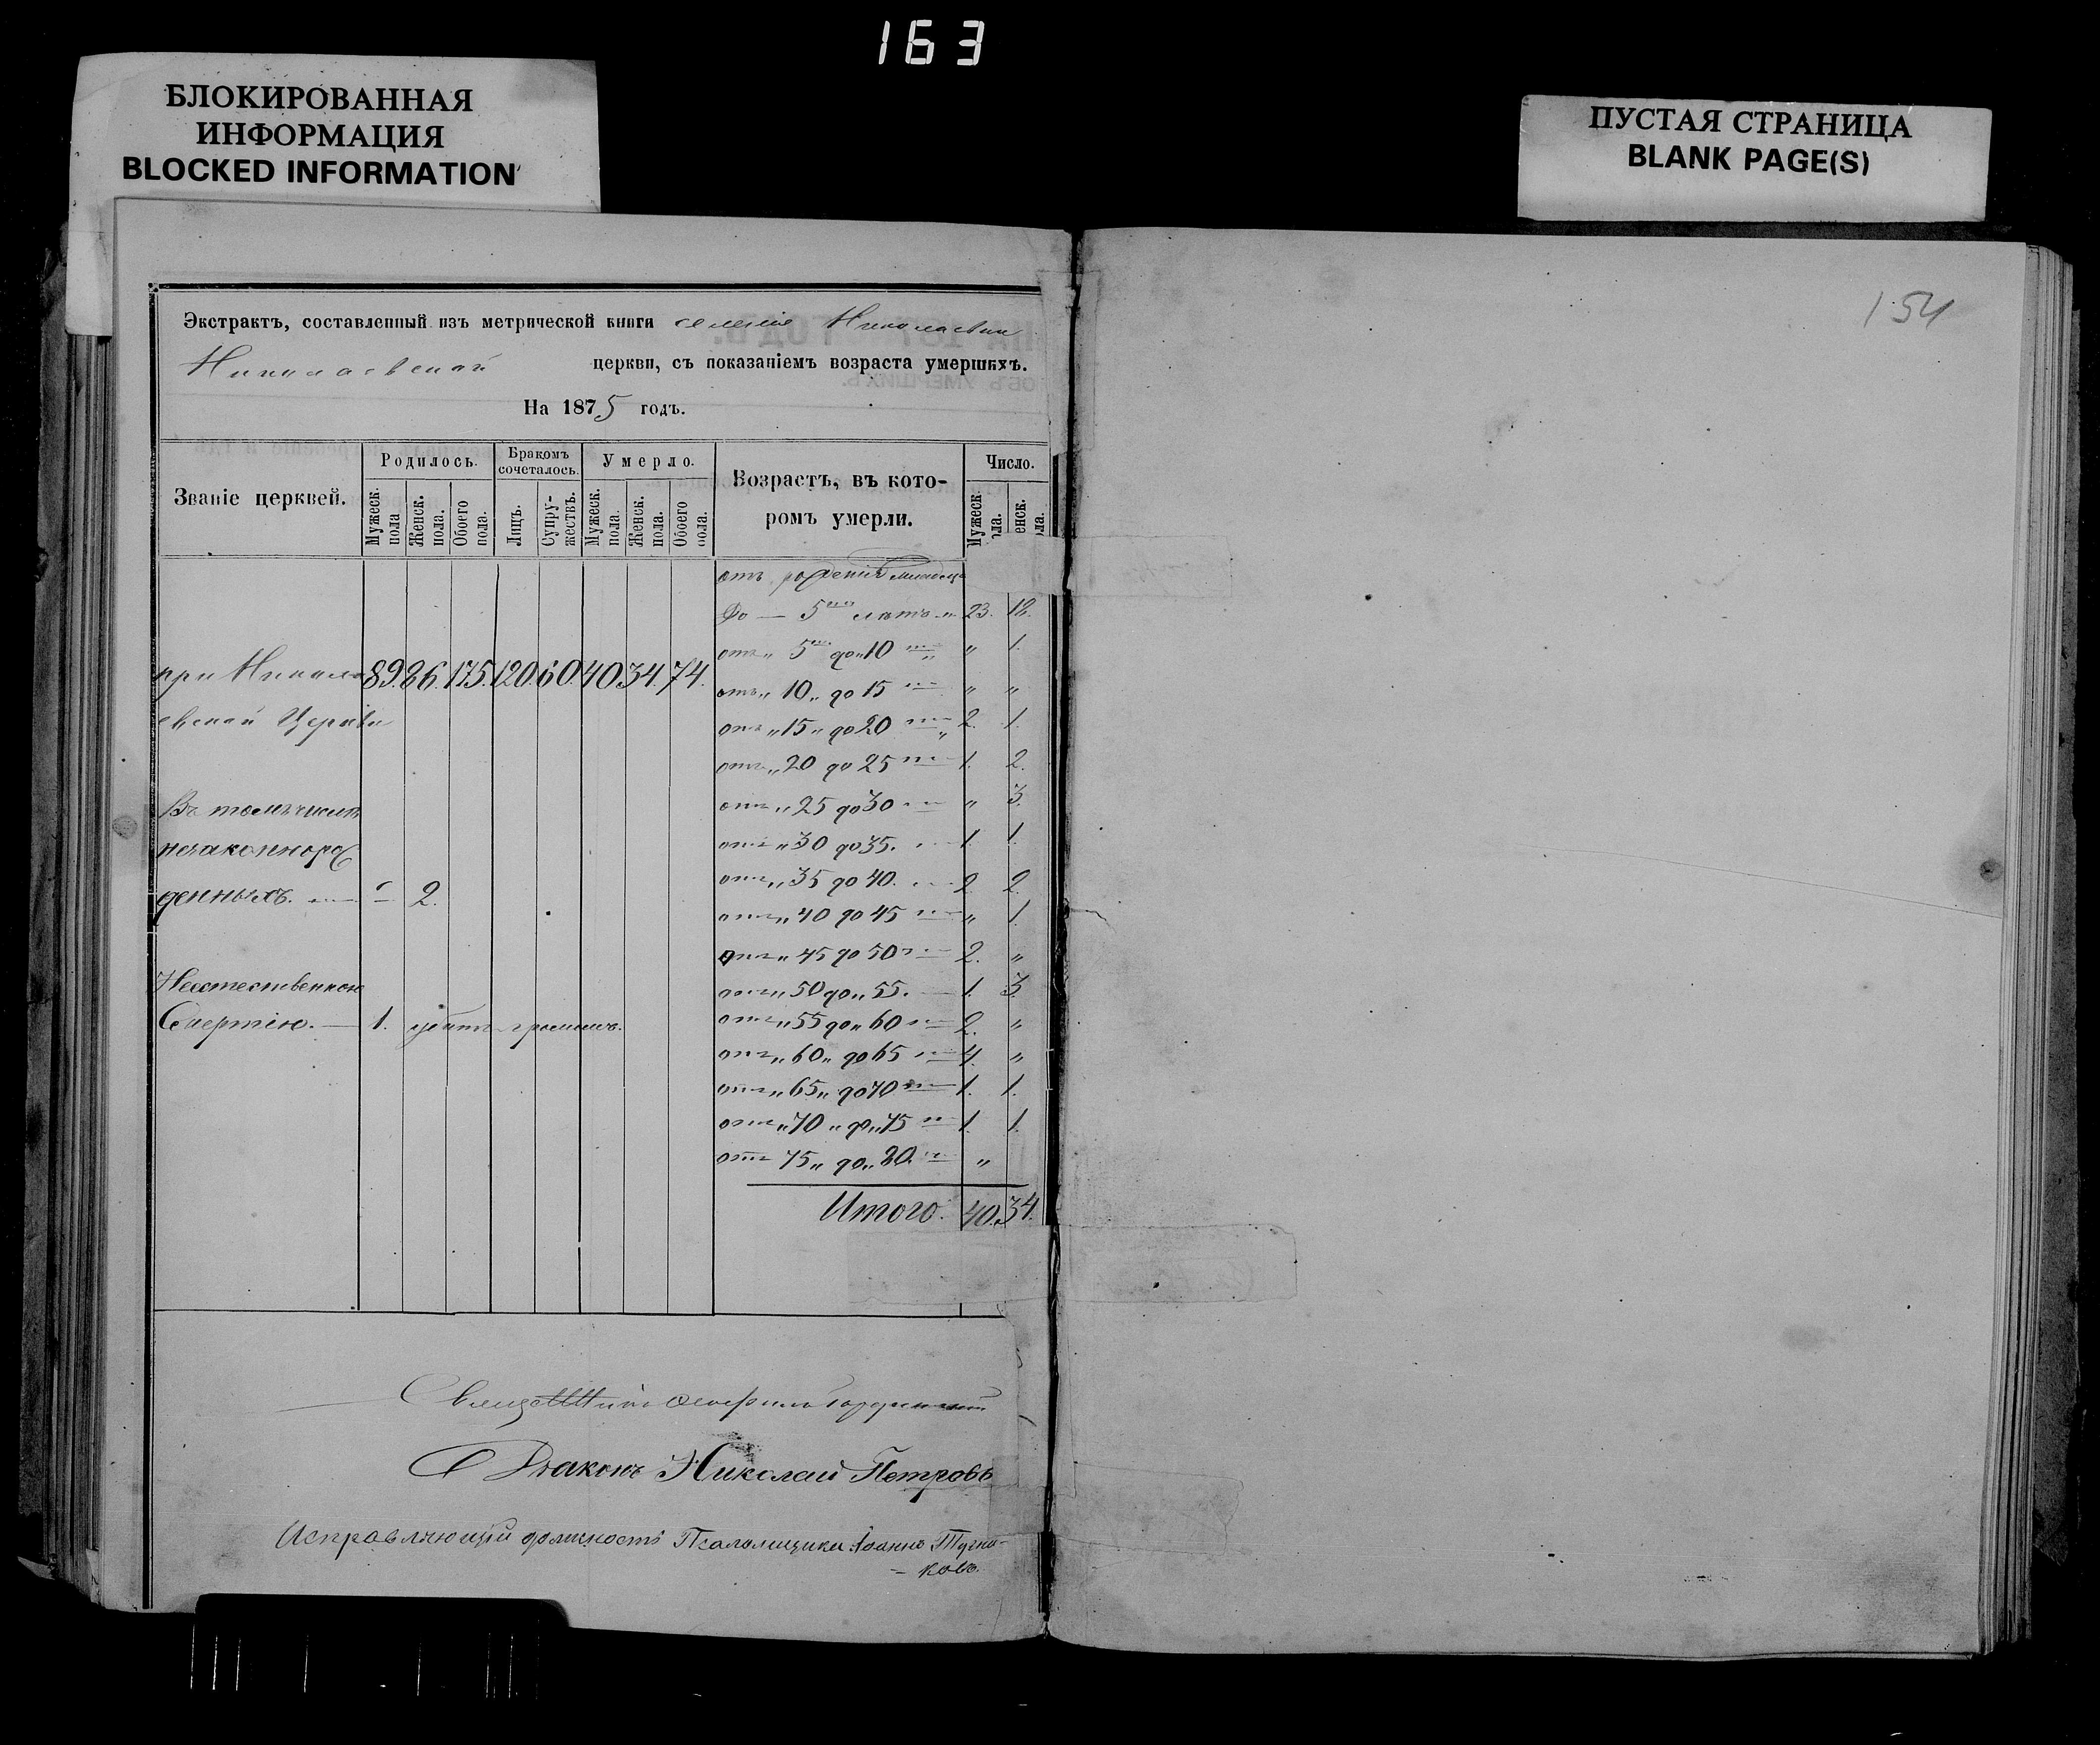 163
БЛОКИРОВАННАЯ
ИНФОРМАЦИЯ
BLOCKED INFORMATION
ПУСТАЯ СТРАНИЦА
BLANK PAGE(S)
154
Экстрактъ, составленный изъ метрической книги селенія Николаевки
Николаевской церкви, съ показаніемъ возраста умершихъ.
На 1875 годъ.
Званіе церквей.
Родилось.
Бракомъ сочеталось.
Умерло.
Возрастъ, въ которомъ умерли.
Число.
Мужеск. пола
Женск. пола.
Обоего пола.
Лицъ.
Супружествъ.
Мужеск. пола.
Женск. пола.
Обоего пола.
Мужеск ола.
енск. ола.
отъ рожденія
до — 5 лѣтъ 23. 18.
отъ „ 5 до „ 10 „ 1.
при Никола 89. 86. 175. 120. 60. 40. 34. 74.
отъ „ 10 „ до 15 „ „
евской Церкви
отъ „ 15 „ до 20 2. 1.
отъ „ 20 до 25 1. 2.
Въ томъ числѣ
отъ „ 25 до 30 „ 3.
незаконнорож
отъ „ 30 до 35. 1 1.
денныхъ. — „ 2.
отъ „ 35 до 40. 2 2.
отъ „ 40 до 45 „ 1.
отъ „ 45 до 50 2. „
Неестественною
отъ „ 50 до „ 55. 1. 3.
Смертію. — 1. убитъ громомъ.
отъ „ 55 до „ 60 2. „
отъ „ 60 „ до 65 4. „
отъ „ 65 „ до 70 1. 1.
отъ „ 70 „ до „ 75 1. 1.
отъ 75 „ до „ 80. „
Итого. 40. 34.
Священникъ
Діаконъ Николай Петровъ
Исправляющій должность Псаломщика Іоаннъ
ковъ.